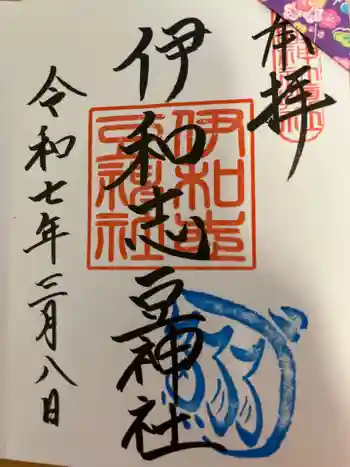 奉拝
伊和志豆神社
令和七年三月八日
伊和志
豆神社